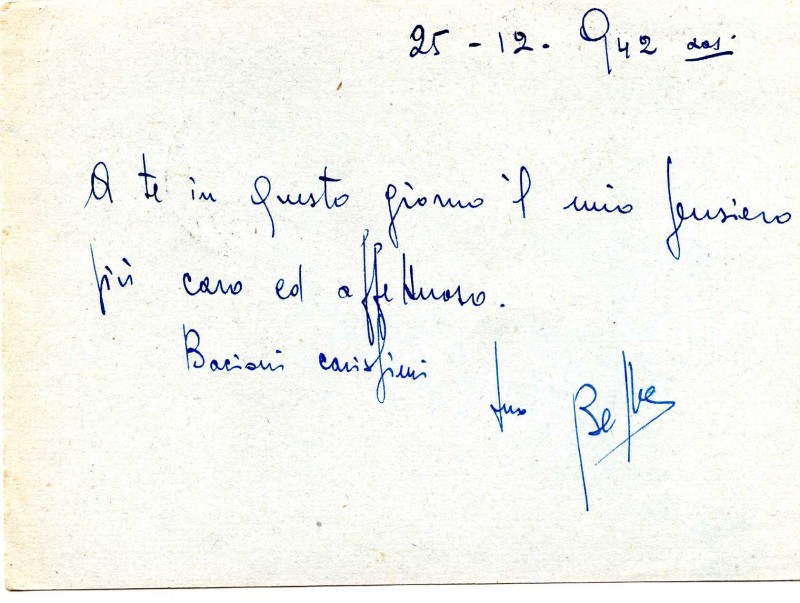 25 - 12 - 942
A te in questo giorno il mio pensiero
più caro ed affettuoso.
Bacioni carissimi tuo